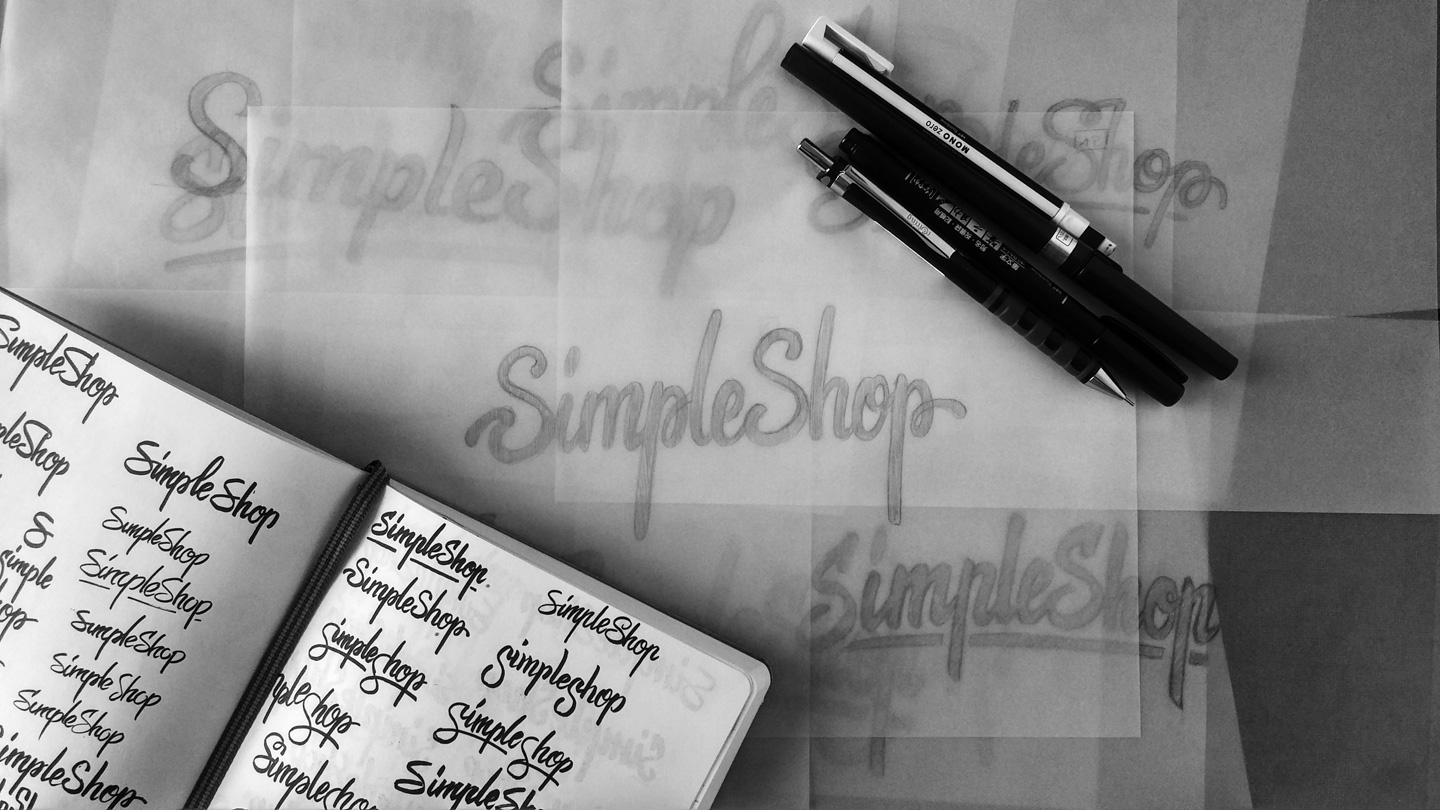 Simple
SimpleShop
leShop
MONO zero
SimpleShop
SimpleShop
SimpleShop
pleShop
Simple Shop
&
SimpleShop
simple
SimpleShop
op
SimpleShop
Simple Shop
SimpleShop
SimpleShop
SimpleShop.
SimpleShop
SimpleShop
simpleshop
simpleshop
mpleshop
simpleshop
Simplesho
SimpleSh